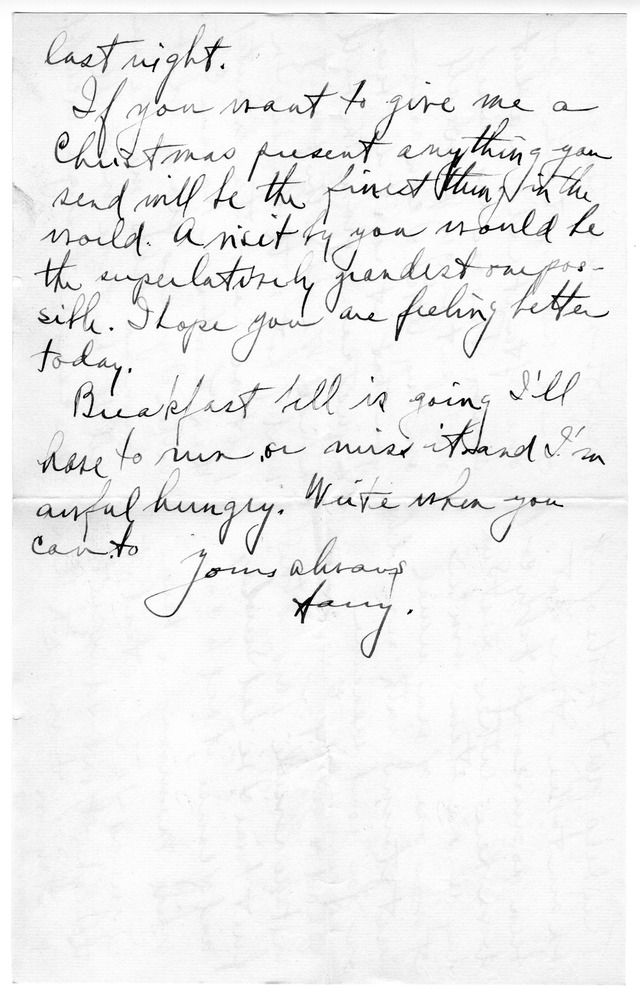 last night.
If you want to give me a
Christmas present anything you
send will be the finest thing in the
world. A visit by you would be
the superlatively grandest one pos-
sible. I hope you are feeling better
today.
Breakfast bell is going I'll
have to run or miss it and I'm
awful hungry. Write when you
can to
Yours always
Harry.